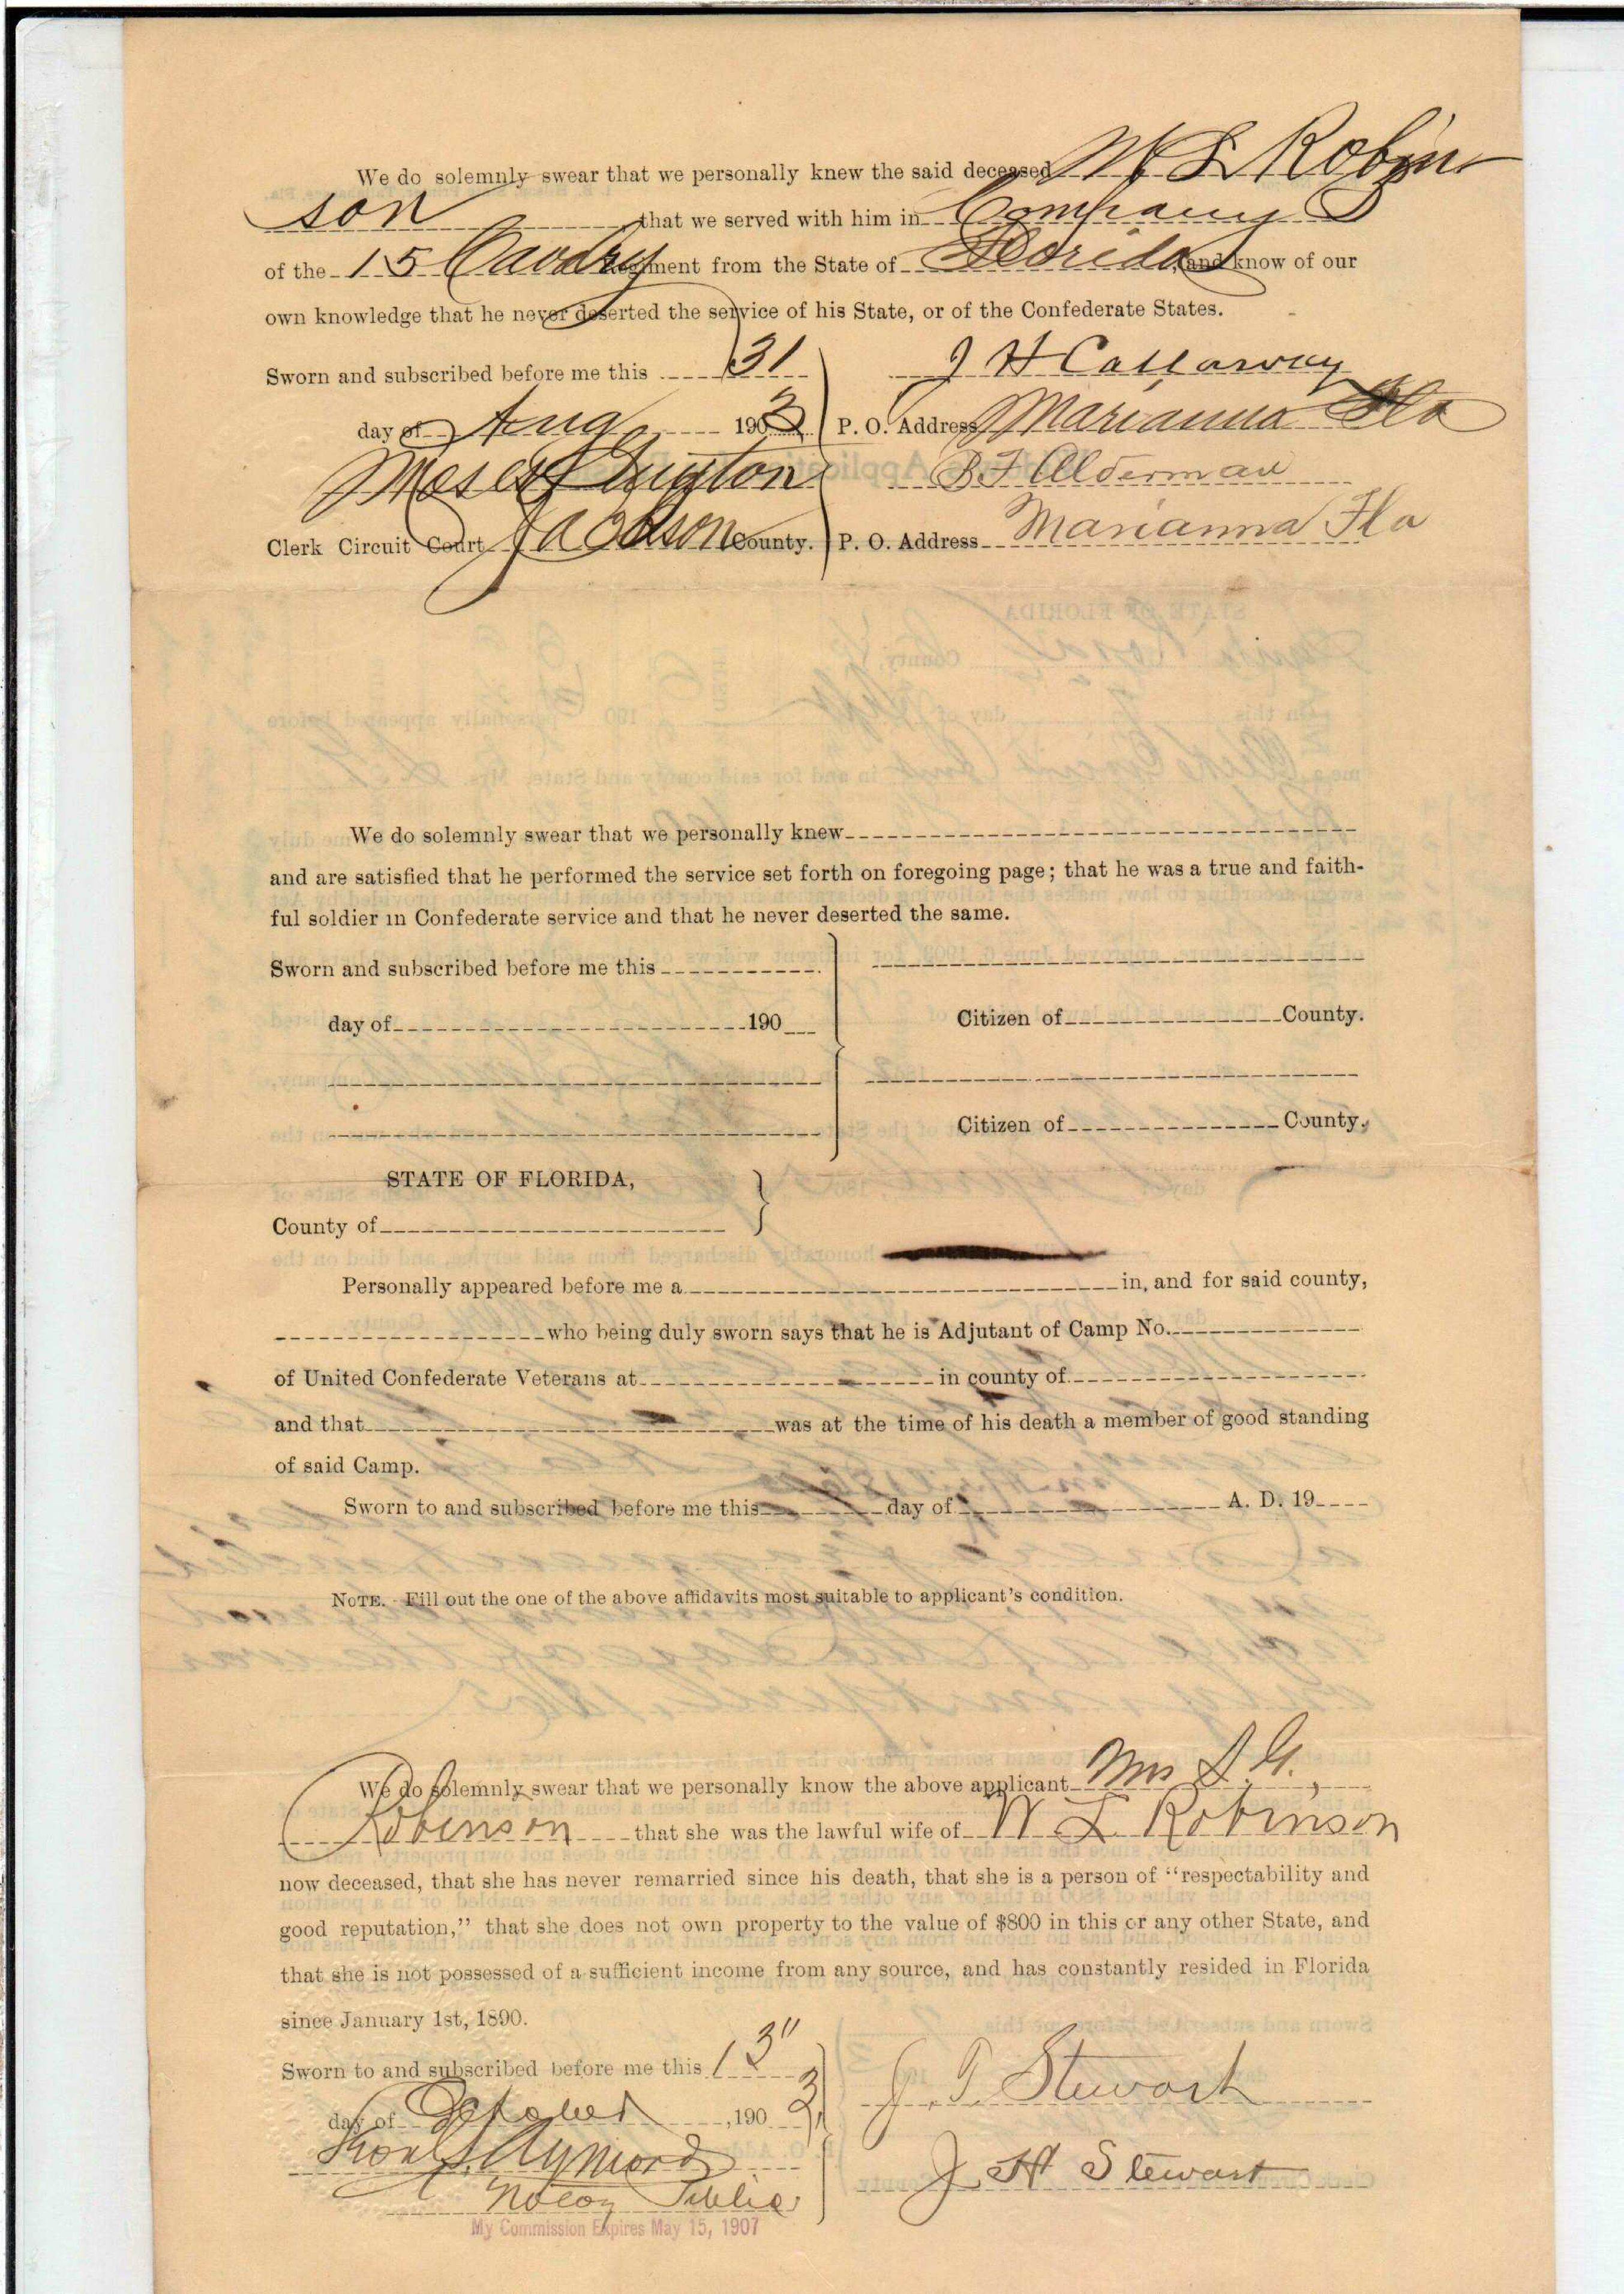 We do solemnly swear that we personally knew the said deceased W L Robin
son that we served with him in Company
of the 15 Cavalry Regiment from the State of Florida, and know of our
own knowledge that he never deserted the service of his State, or of the Confederate States.
Sworn and subscribed before me this 31
J H Callaway
day of Aug 1903
P. O. Address Marianna Fla
Moses Guyton
B F Alderman
Clerk Circuit Court Jackson County.
P. O. Address Marianna Fla
We do solemnly swear that we personally knew
and are satisfied that he performed the service set forth on foregoing page; that he was a true and faith-
ful soldier in Confederate service and that he never deserted the same.
Sworn and subscribed before me this
day of 190
Citizen of County.
Citizen of County.
STATE OF FLORIDA,
County of
Personally appeared before me a in, and for said county,
who being duly sworn says that he is Adjutant of Camp No.
of United Confederate Veterans at in county of
and that was at the time of his death a member of good standing
of said Camp.
Sworn to and subscribed before me this day of A. D. 19
NOTE. Fill out the one of the above affidavits most suitable to applicant's condition.
We do solemnly swear that we personally know the above applicant Mrs S. G.,
Robinson that she was the lawful wife of W L Robinson
now deceased, that she has never remarried since his death, that she is a person of "respectability and
good reputation," that she does not own property to the value of $800 in this or any other State, and
that she is not possessed of a sufficient income from any source, and has constantly resided in Florida
since January 1st, 1890.
Sworn to and subscribed before me this 13"
day of October, 1903,
J. T. Stewart
J H Stewart
Notary Public
My Commission Expires May 15, 1907